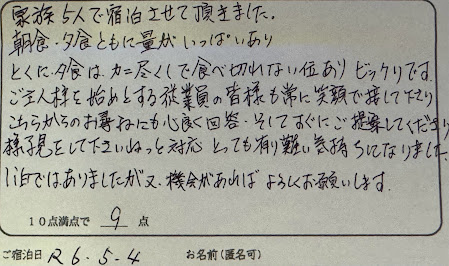 家族5人で宿泊させて頂きました。
朝食・夕食ともに量がいっぱいあり
とくに夕食は、カニ尽くしで食べ切れない位あり ビックリです。
ご主人様を始めとする従業員の皆様も常に笑顔で接して下さり
こちらからのお尋ねにも心良く回答・そしてすぐにご提案してくださり
様子見をして下さい 対応 とっても有り難い気持ちになりました。
1泊ではありましたが又、機会があれば よろしくお願いします。
10点満点で 9 点
ご宿泊日 R6・5・4 お名前(匿名可)